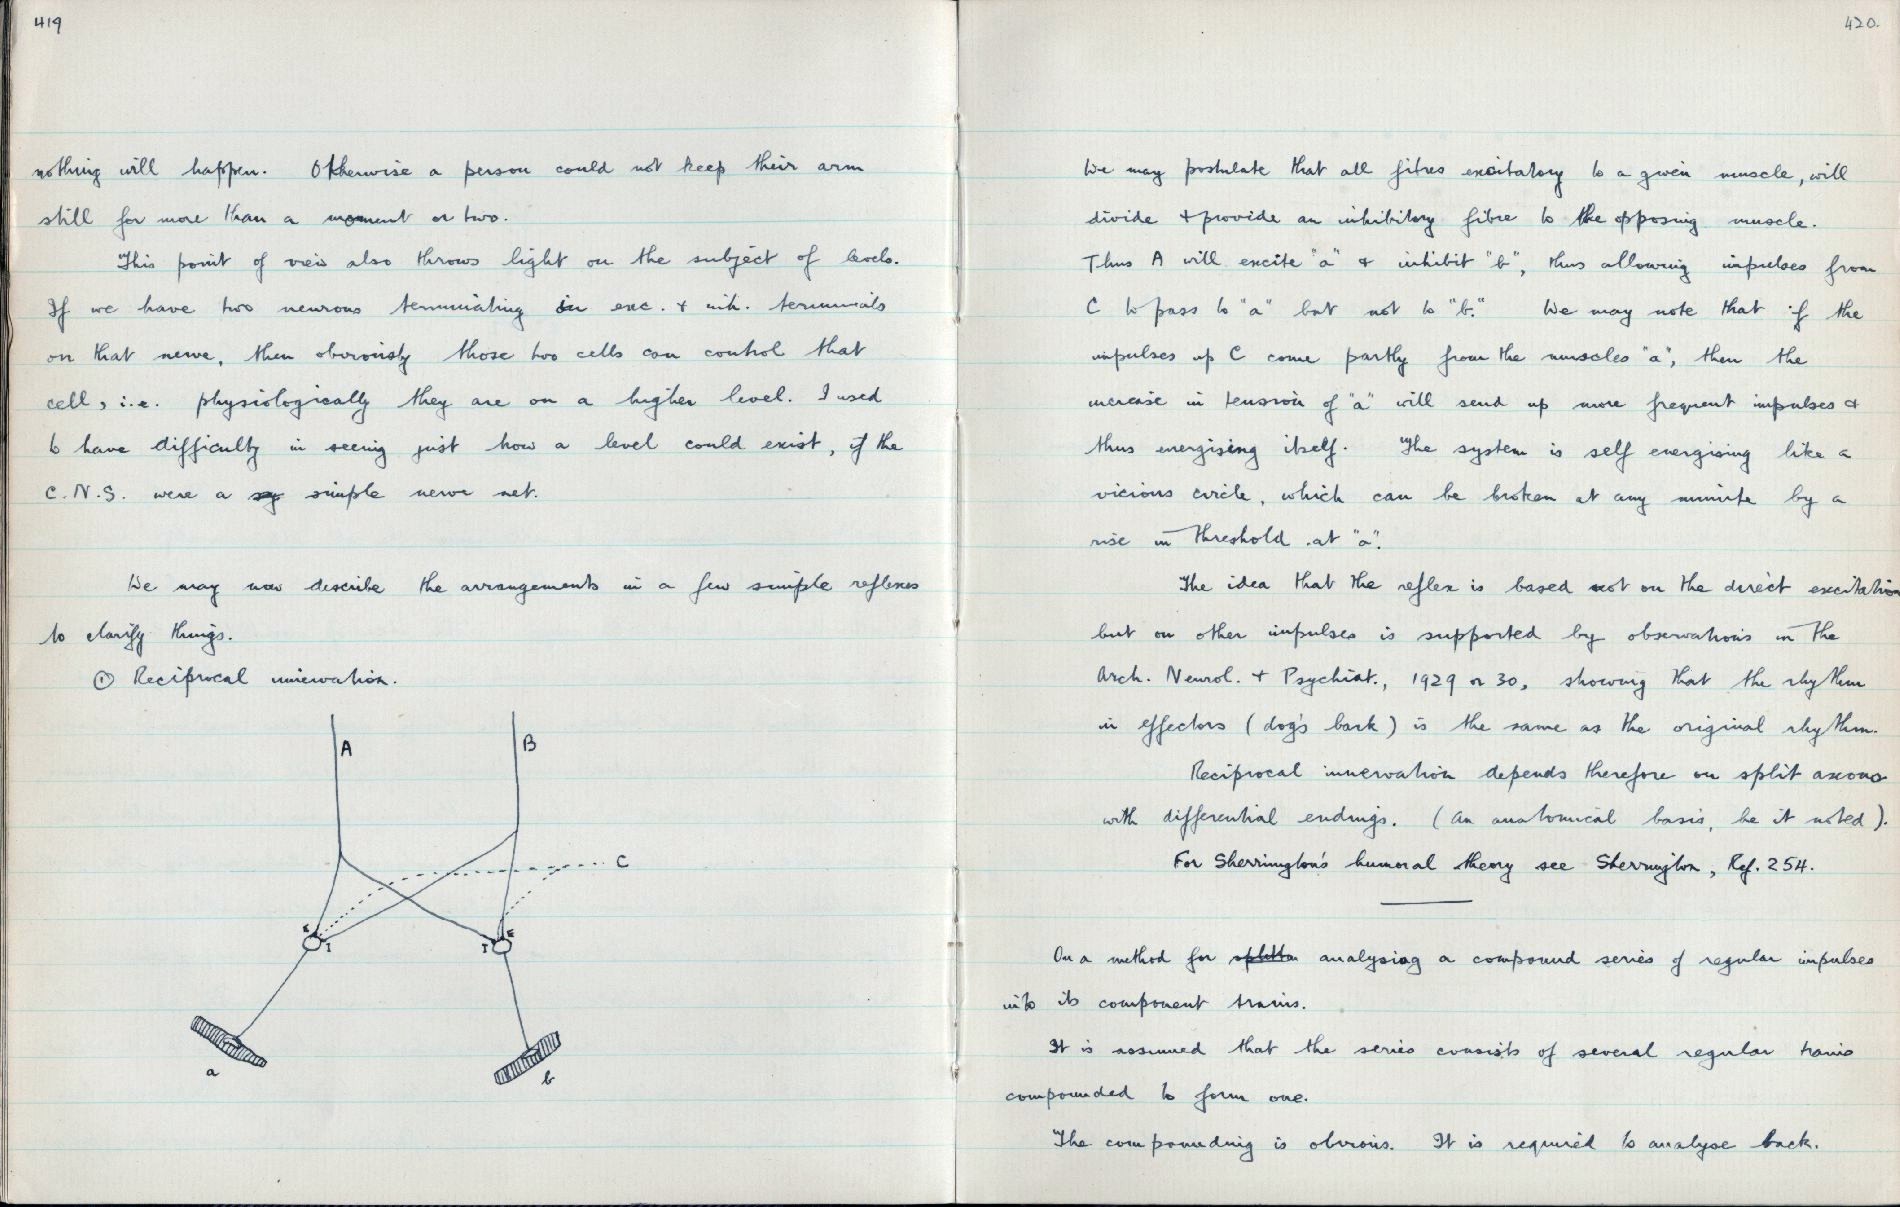 419
nothing will happen. Otherwise a person could not keep their arm
still for more than a moment or two.
This point of view also throws light on the subject of levels.
If we have two neurons terminating in exc. & inh. terminals
on that nerve, then obviously those two cells can control that
cell, i.e. physiologically they are on a higher level. I used
to have difficulty in seeing just how a level could exist, if the
C.N.S. were a simple nerve net.
We may now describe the arrangements in a few simple reflexes
to clarify things.
① Reciprocal innervation.
A B
C
E I I E
a b
420.
We may postulate that all fibres excitatory to a given muscle, will
divide & provide an inhibitory fibre to the opposing muscle.
Thus A will excite "a" & inhibit "b", thus allowing impulses from
C to pass to "a" but not to "b." We may note that if the
impulses up C come partly from the muscles "a", then the
increase in tension of "a" will send up more frequent impulses &
thus energising itself. The system is self energising like a
vicious circle, which can be broken at any minute by a
rise in threshold at "a".
The idea that the reflex is based not on the direct excitation
but on other impulses is supported by observations in the
Arch. Neurol. & Psychiat., 1929 or 30, showing that the rhythm
in effectors (dog's bark) is the same as the original rhythm.
Reciprocal innervation depends therefore on split axons
with differential endings. (An anatomical basis, be it noted).
For Sherrington's humoral theory see Sherrington, Ref. 254.
On a method for analysing a compound series of regular impulses
into its component trains.
It is assumed that the series consists of several regular trains
compounded to form one.
The compounding is obvious. It is required to analyse back.